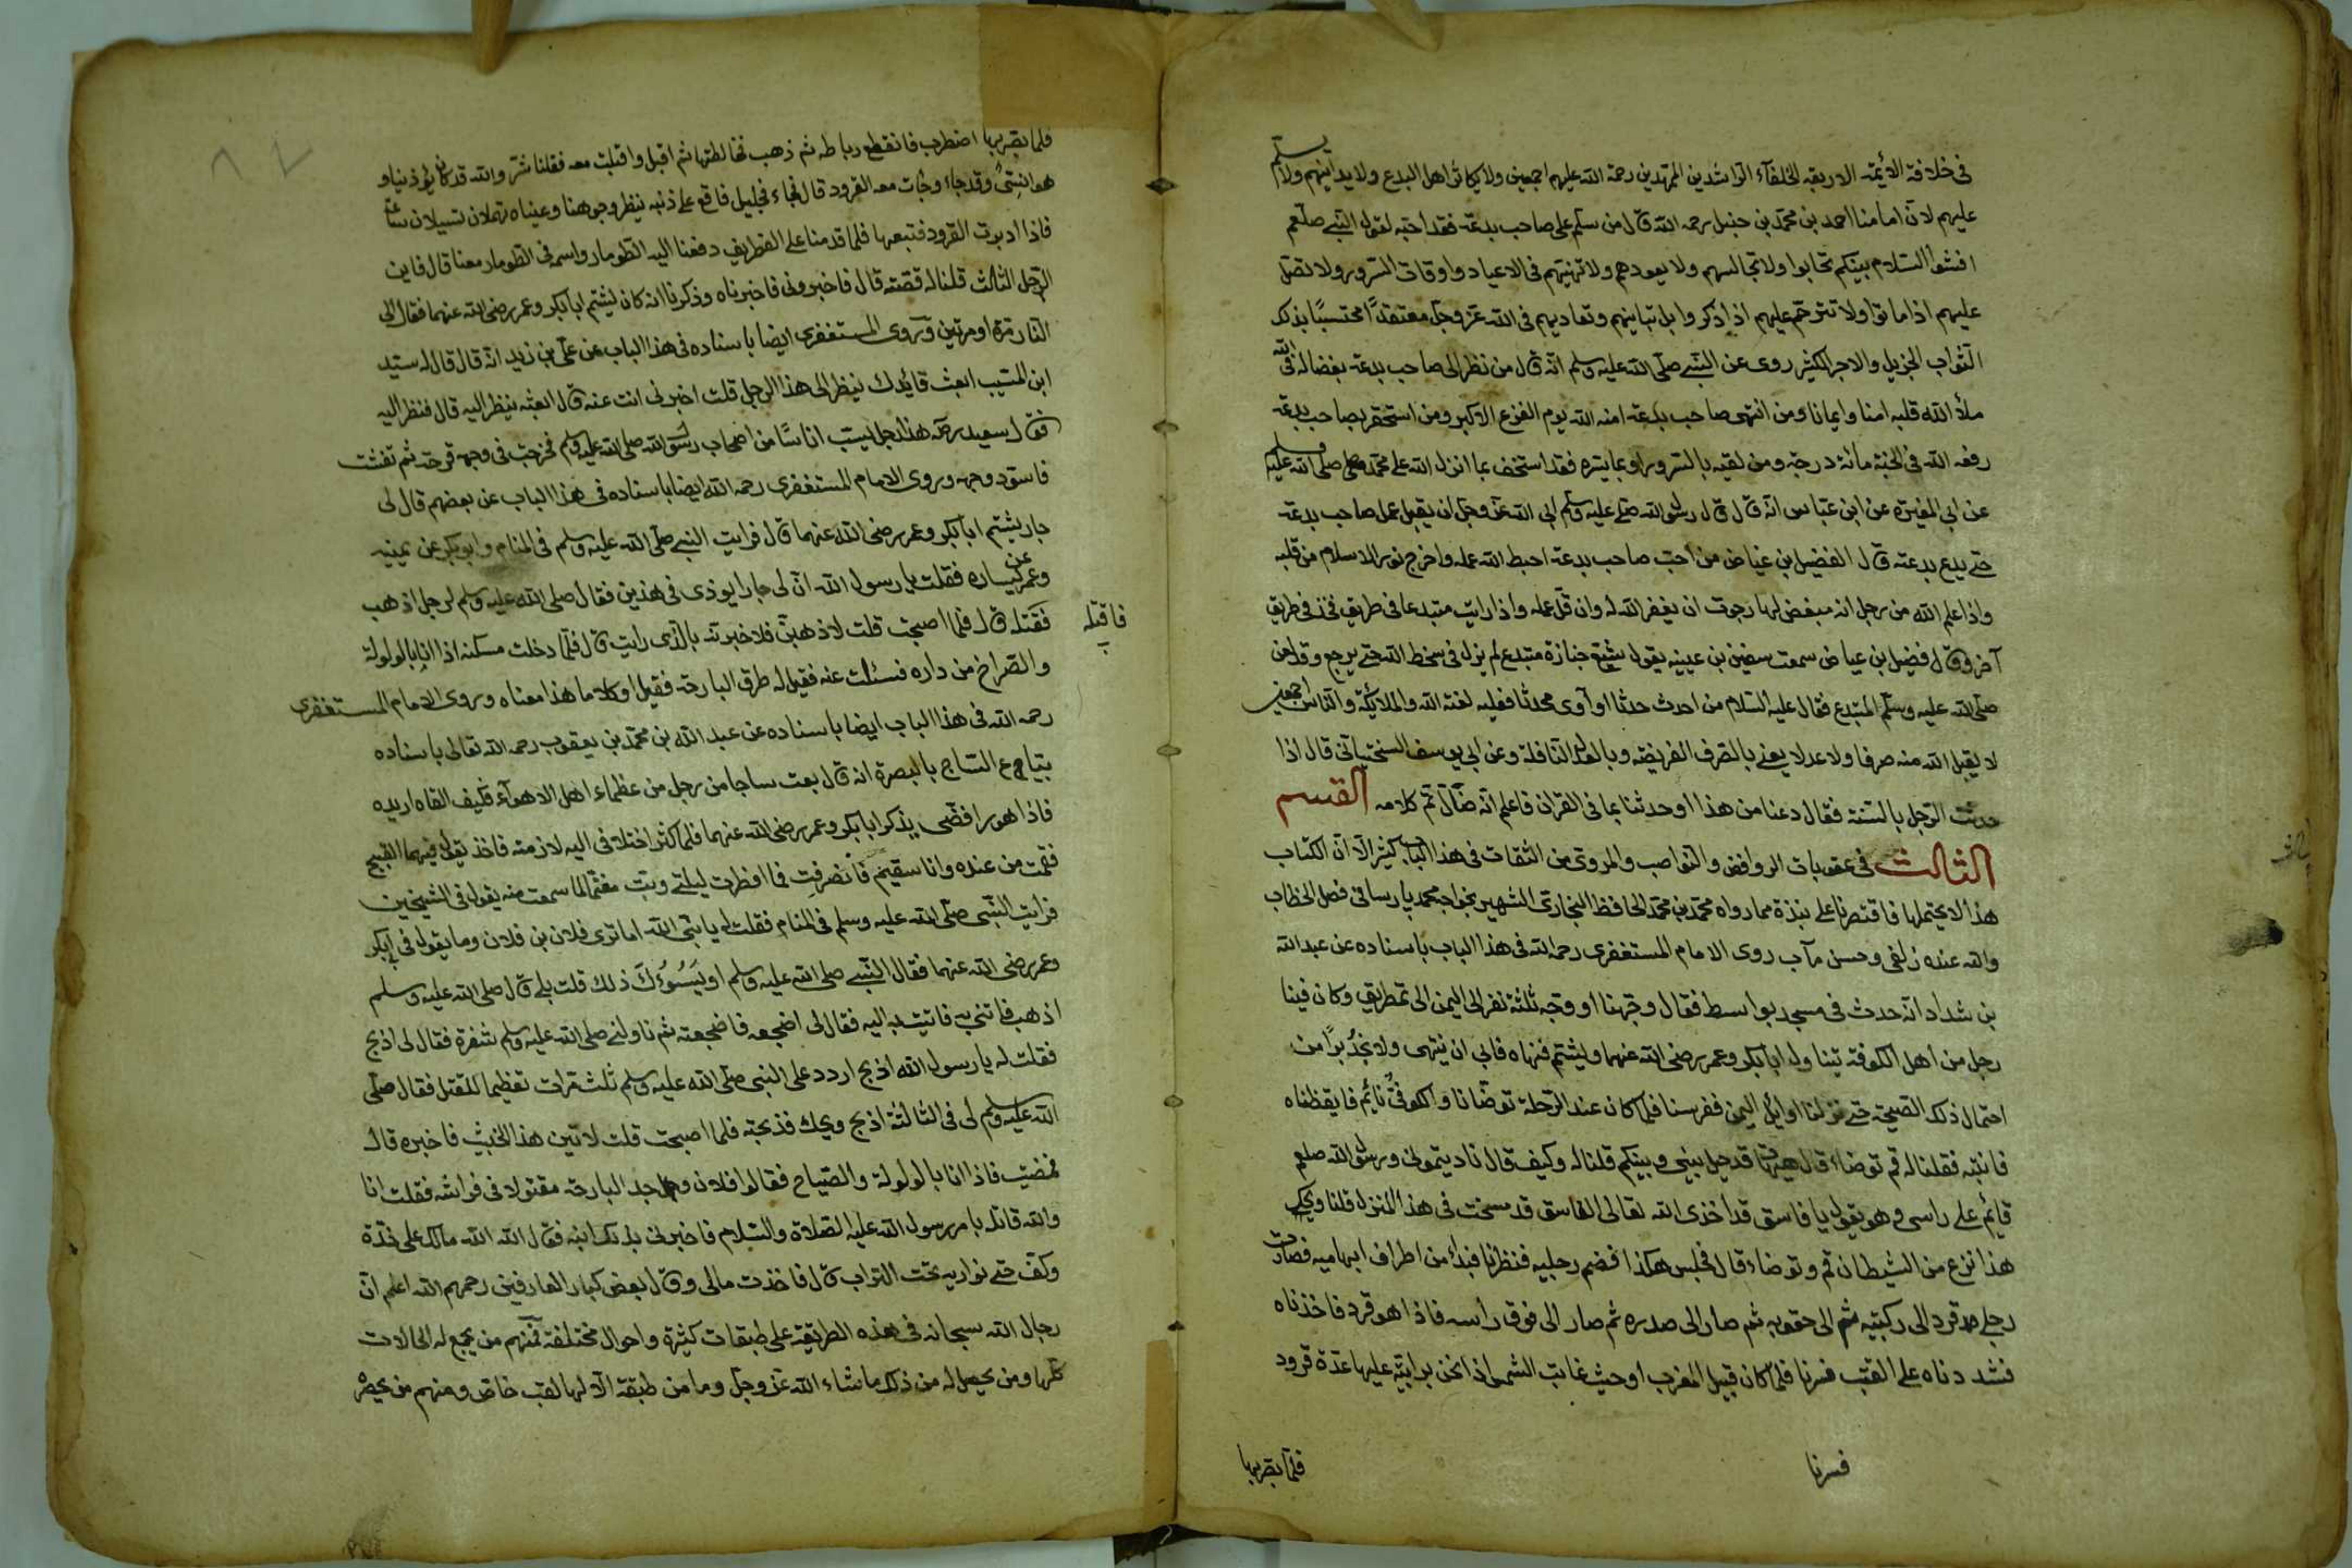 في خلافة الائمة الاربعة الخلفآء الراشدين المهتدين رحمة الله عليهم اجمعين ولا يكاثر اهل البدع ولا يدانيهم ولا يسلم
عليهم لان امامنا احمد بن محمد بن حنبل رحمه الله قال من سلم على صاحب بدعة فقد احبه لقول النبي صلعم
افشوا السلام بينكم تحابوا ولا تجالسهم ولا يعودهم ولا تهنيهم في الاعياد واوقات السرور ولا تصل
عليهم اذا ماتوا ولا تترحم عليهم اذا ذكروا بل تباينهم وتعاديهم في الله عز وجل معتقدًا محتسبًا بذلك
الثواب الجزيل والاجر الكثير روى عن النبي صلى الله عليه وسلم انه قال من نظر الى صاحب بدعة بغضا له في الله
ملأ الله قلبه امنا وايمانا ومن انتهى صاحب بدعة امنه الله يوم الفزع الاكبر ومن استحقر بصاحب بدعة
رفعه الله في الجنة مائة درجة ومن لقيه بالسرور او بما يسره فقد استخف بما انزل الله على محمد صلى الله عليه وسلم
عن ابي المغيرة عن ابن عباس انه قال قال رسول الله صلى عليه وسلم ابى الله عز وجل ان يقبل عمل صاحب بدعة
حتى يدع بدعته قال الفضيل بن عياض من احب صاحب بدعة احبط الله عمله واخرج نور الاسلام من قلبه
واذا علم الله من رجل انه مبغض لها رجوت ان يغفر الله له وان قل عمله واذا رايت مبتدعا في طريق فخذ في طريق
آخر وقال فضيل بن عياض سمعت سفين بن عيينه يقول يشيع جنازة مبتدع لم يزل في سخط الله حتى يرجع وقد لعن
صلى الله عليه وسلم المبتدع فقال عليه السلام من احدث حدثا او آوى محدثا فعليه لعنة الله والملائكة والناس اجمعين
لا يقبل الله منه صرفا ولا عدلا يعني بالصرف الفريضه وبالعدل النافلة وعن ابي يوسف السختياني قال اذا
حدثت الرجل بالسنة فقال دعنا من هذا او حدثنا بما في القران فاعلم انه ضال تم كلامه القسم
الثالث في عقوبات الروافض والنواصب والمروى من الثقات في هذا الباب كثير الا ان الكتاب
هذا لا يحتملها فاقتصرنا على نبذة مما رواه محمد بن محمد الحافظ البخارى الشهير بخواجه محمد پارسا في فصل الخطاب
والله عنده زلفى وحسن مآب روى الامام المستغفرى رحمه الله في هذا الباب باسناده عن عبد الله
بن شداد انه حدث في مسجد بواسط فقال وجهنا او وجه ثلثة نفر الى اليمن الى غطريف وكان فينا
رجل من اهل الكوفة يتناول ابا بكر وعمر رضى الله عنهما ويشتم فنهاه فابى ان ينتهى ولا نجد بدًا من
احتمال ذلك الصيحة حتى نزلنا اوايل اليمن ففرسنا فلما كان عند الرحلة توضانا والكوفى نائم فايقظناه
فانتبه فقلنا له قم توضاء قال هيهات قد حيل بيني وبينكم قلنا له وكيف قال ناديتموني ورسول الله صلعم
قائم على راسى وهو يقول يا فاسق قد اخذى الله تعالى الفاسق قد مسخت في هذا المنزل قلنا ويحك
هذا نزع من الشيطان قم وتوضاء قال فجلس هكذا فضم رجليه فنظرنا فبداء من اطراف ابهاميه فصارت
رجلى قرد الى ركبتيه ثم الى حقويه ثم صار الى صدره ثم صار الى فوق رأسه فاذا هو قرد فاخذناه
فشددناه على القتب فسرنا فلما كان قبيل المغرب او حيث غابت الشمس اذا نحن برابية عليها عدة قرود
فسرنا
فلما بصر بها
فلما بصر بها اضطرب فانقطع رباطه ثم ذهب فخالطتها ثم اقبل واقبلت معه فقلنا شر والله قد كان يوذينا و
هو انسى وقد جاء وجات معه القرود قال فجاء فجليل فاقع على ذنبه ينظر وجوهنا وعيناه تهملان تسيلان ساعة
فاذا ادبرت القرود فتبعها فلما قدمنا على الغطريف دفعنا اليه الطومار واسم في الطومار معنا قال فاين
الرجل الثالث قلنا له قصته قال فاخبرونى فاخبرناه وذكرنا انه كان يشتم ابا بكر وعمر رضى الله عنهما فقال الى
النار مرة او مرتين وروى المستغفرى ايضا باسناده في هذا الباب عن على بن زيد انه قال قال له سعيد
ابن المسيب ابعث قائدك ينظر الى هذا الرجل قلت اخبرنى انت عنه قال ابعثه ينظر اليه قال فنظر اليه
فقال سعيد رحمه هذا رجل يسب اناسًا من اصحاب رسول الله صلى الله عليه وسلم فخرجت في وجهه قرحة ثم تفشت
فاسود وجهه وروى الامام المستغفرى رحمه الله ايضا باسناده في هذا الباب عن بعضهم قال لى
جار يشتم ابا بكر وعمر رضى الله عنهما قال فرايت النبي صلى الله عليه وسلم في المنام وابو بكر عن يمينه
وعمر عن يساره فقلت يا رسول الله ان لى جارا يوذى في هذين فقال صلى الله عليه وسلم لرجل اذهب
فاقتله
فقتله قال فلما اصبحت قلت لاذهبن فلاخبرنه بالذى رايت قال فلما دخلت مسكنه اذا انا بالولولة
والصراخ من داره فسئلت عنه فقيل له طرق البارحة فقيل او كلاما هذا معناه وروى الامام المستغفرى
رحمه الله في هذا الباب ايضا باسناده عن عبد الله بن محمد بن يعقوب رحمه الله تعالى باسناده
بتياع الساج بالبصرة انه قال بعت ساجا من رجل من عظماء اهل الاهوآء فكيف القاه اريده
فاذا هو رافضى يذكر ابا بكر وعمر رضى الله عنهما فلما كثر اختلافى اليه لازمته فاخذ يقول فيهما القبيح
فقمت من عنده وانا سقيم فانصرفت فما افطرت ليلتى وبت مغتما لما سمعت منه يقول في الشيخين
فرايت النبى صلى الله عليه وسلم في المنام فقلت له يا نبى الله اما ترى فلان بن فلان وما يقول في ابى بكر
وعمر رضى الله عنهما فقال النبي صلى الله عليه وسلم او يَسُوءُكَ ذلك قلت بلى قال صلى الله عليه وسلم
اذهب فاتنى به فاتيت به اليه فقال لى اضجعه فاضجعته ثم ناولنى صلى الله عليه وسلم شفرة فقال لى اذبح
فقلت له يا رسول الله اذبح اردد على النبى صلى الله عليه وسلم ثلث مرات تعظيما للقتل فقال صلى
الله عليه وسلم لى في الثالثة اذبح ويحك فذبحته فلما اصبحت قلت لاتين هذا الخبيث فاخبره قال
فمضيت فاذا انا بالولولة والصياح فقالوا فلان وجد البارحة مقتولا في فراشه فقلت انا
والله قاتله بامر رسول الله عليه الصلاة والسلام فاخبرنى بذلك ابنه فقال الله الله مالك على خذه
وكف حتى نواريه تحت التراب قال فاخذت مالى وقال بعض كبار العارفين رحمهم الله اعلم ان
رجال الله سبحانه في هذه الطريقة على طبقات كثيرة واحوال مختلفة فمنهم من يجمع له الحالات
كلها ومن يحصل له من ذلك ما شاء الله عز وجل وما من طبقة الا لها لقب خاص ومنهم من يحصر